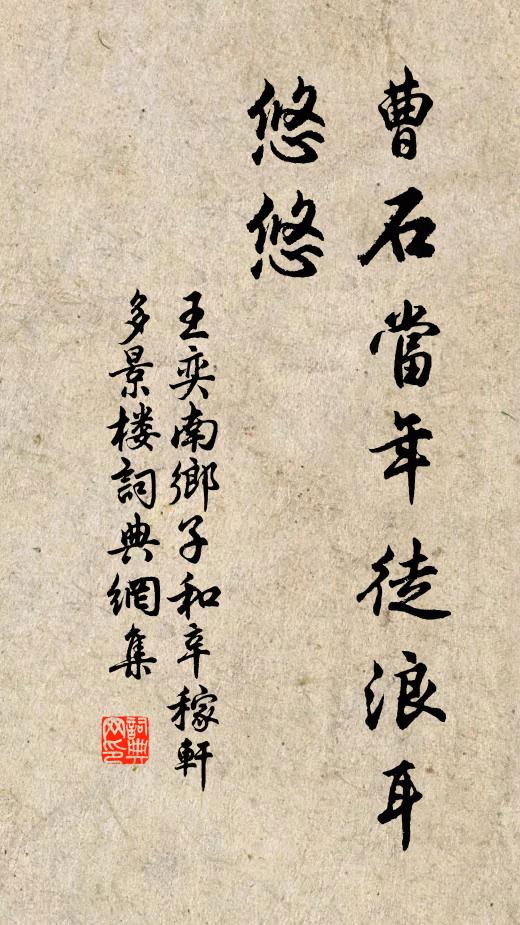 曹石當年徒浪耳
悠悠
王奕南鄉子和辛稼軒
多景楼詞典網集
詞典網印